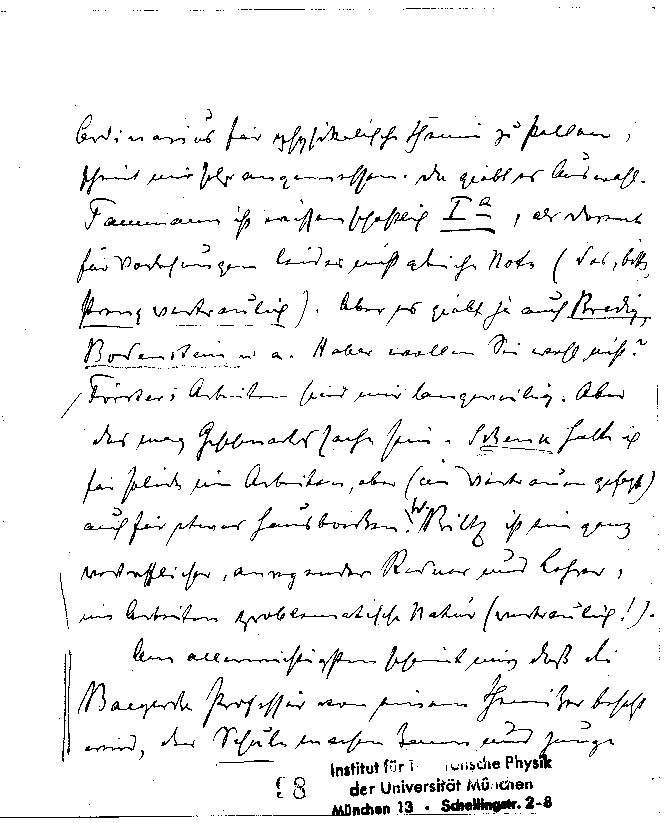 Ordinarius für physikalische Chemie zu stellen,
scheint mir sehr angemessen. Da giebt es Auswahl.
Tammann ist wissenschaftlich Ia, als Docent
für Vorlesungen leider nicht gleiche Note (das, bitte,
streng vertraulich). Aber es giebt ja auch Bredig,
Bodenstein u. a. Haber wollen Sie wohl nicht?
Försters Arbeiten sind mir langweilig. Aber
das mag Geschmackssache sein. Schenk halte ich
für solide im Arbeiten, aber (im Vertrauen gesagt)
auch für etwas hausbacken. W. Biltz ist ein ganz
vortrefflicher, anregender Redner und Lehrer,
im Arbeiten problematische Natur (vertraulich!).
Am allerwichtigsten scheint mir, daß die
Baeyersche Professur von einem Chemiker besetzt
wird, der Schule machen kann und junge
98
Institut für Physik
der Universität München
München 13 · Schellingstr. 2-8